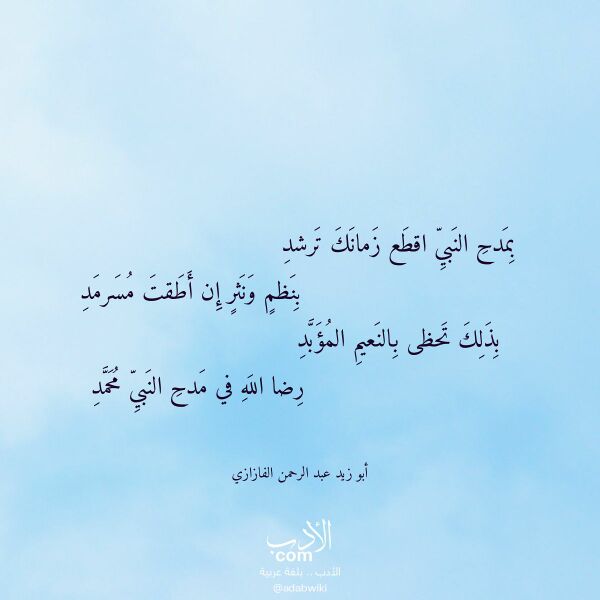 بِمَدحِ النَبيِّ اقطَع زَمانَكَ تَرشدِ
بِنَظمٍ وَنَثرٍ إِن أَطَقتَ مُسَرمَدِ
بِذَلِكَ تَحظى بِالنَعيمِ المُؤَبَّدِ
رِضا اللَهِ في مَدحِ النَبيِّ مُحَمَّدِ
أبو زيد عبد الرحمن الفازازي
الأدب
com
الأدب .. بلغة عربية
@adabwiki